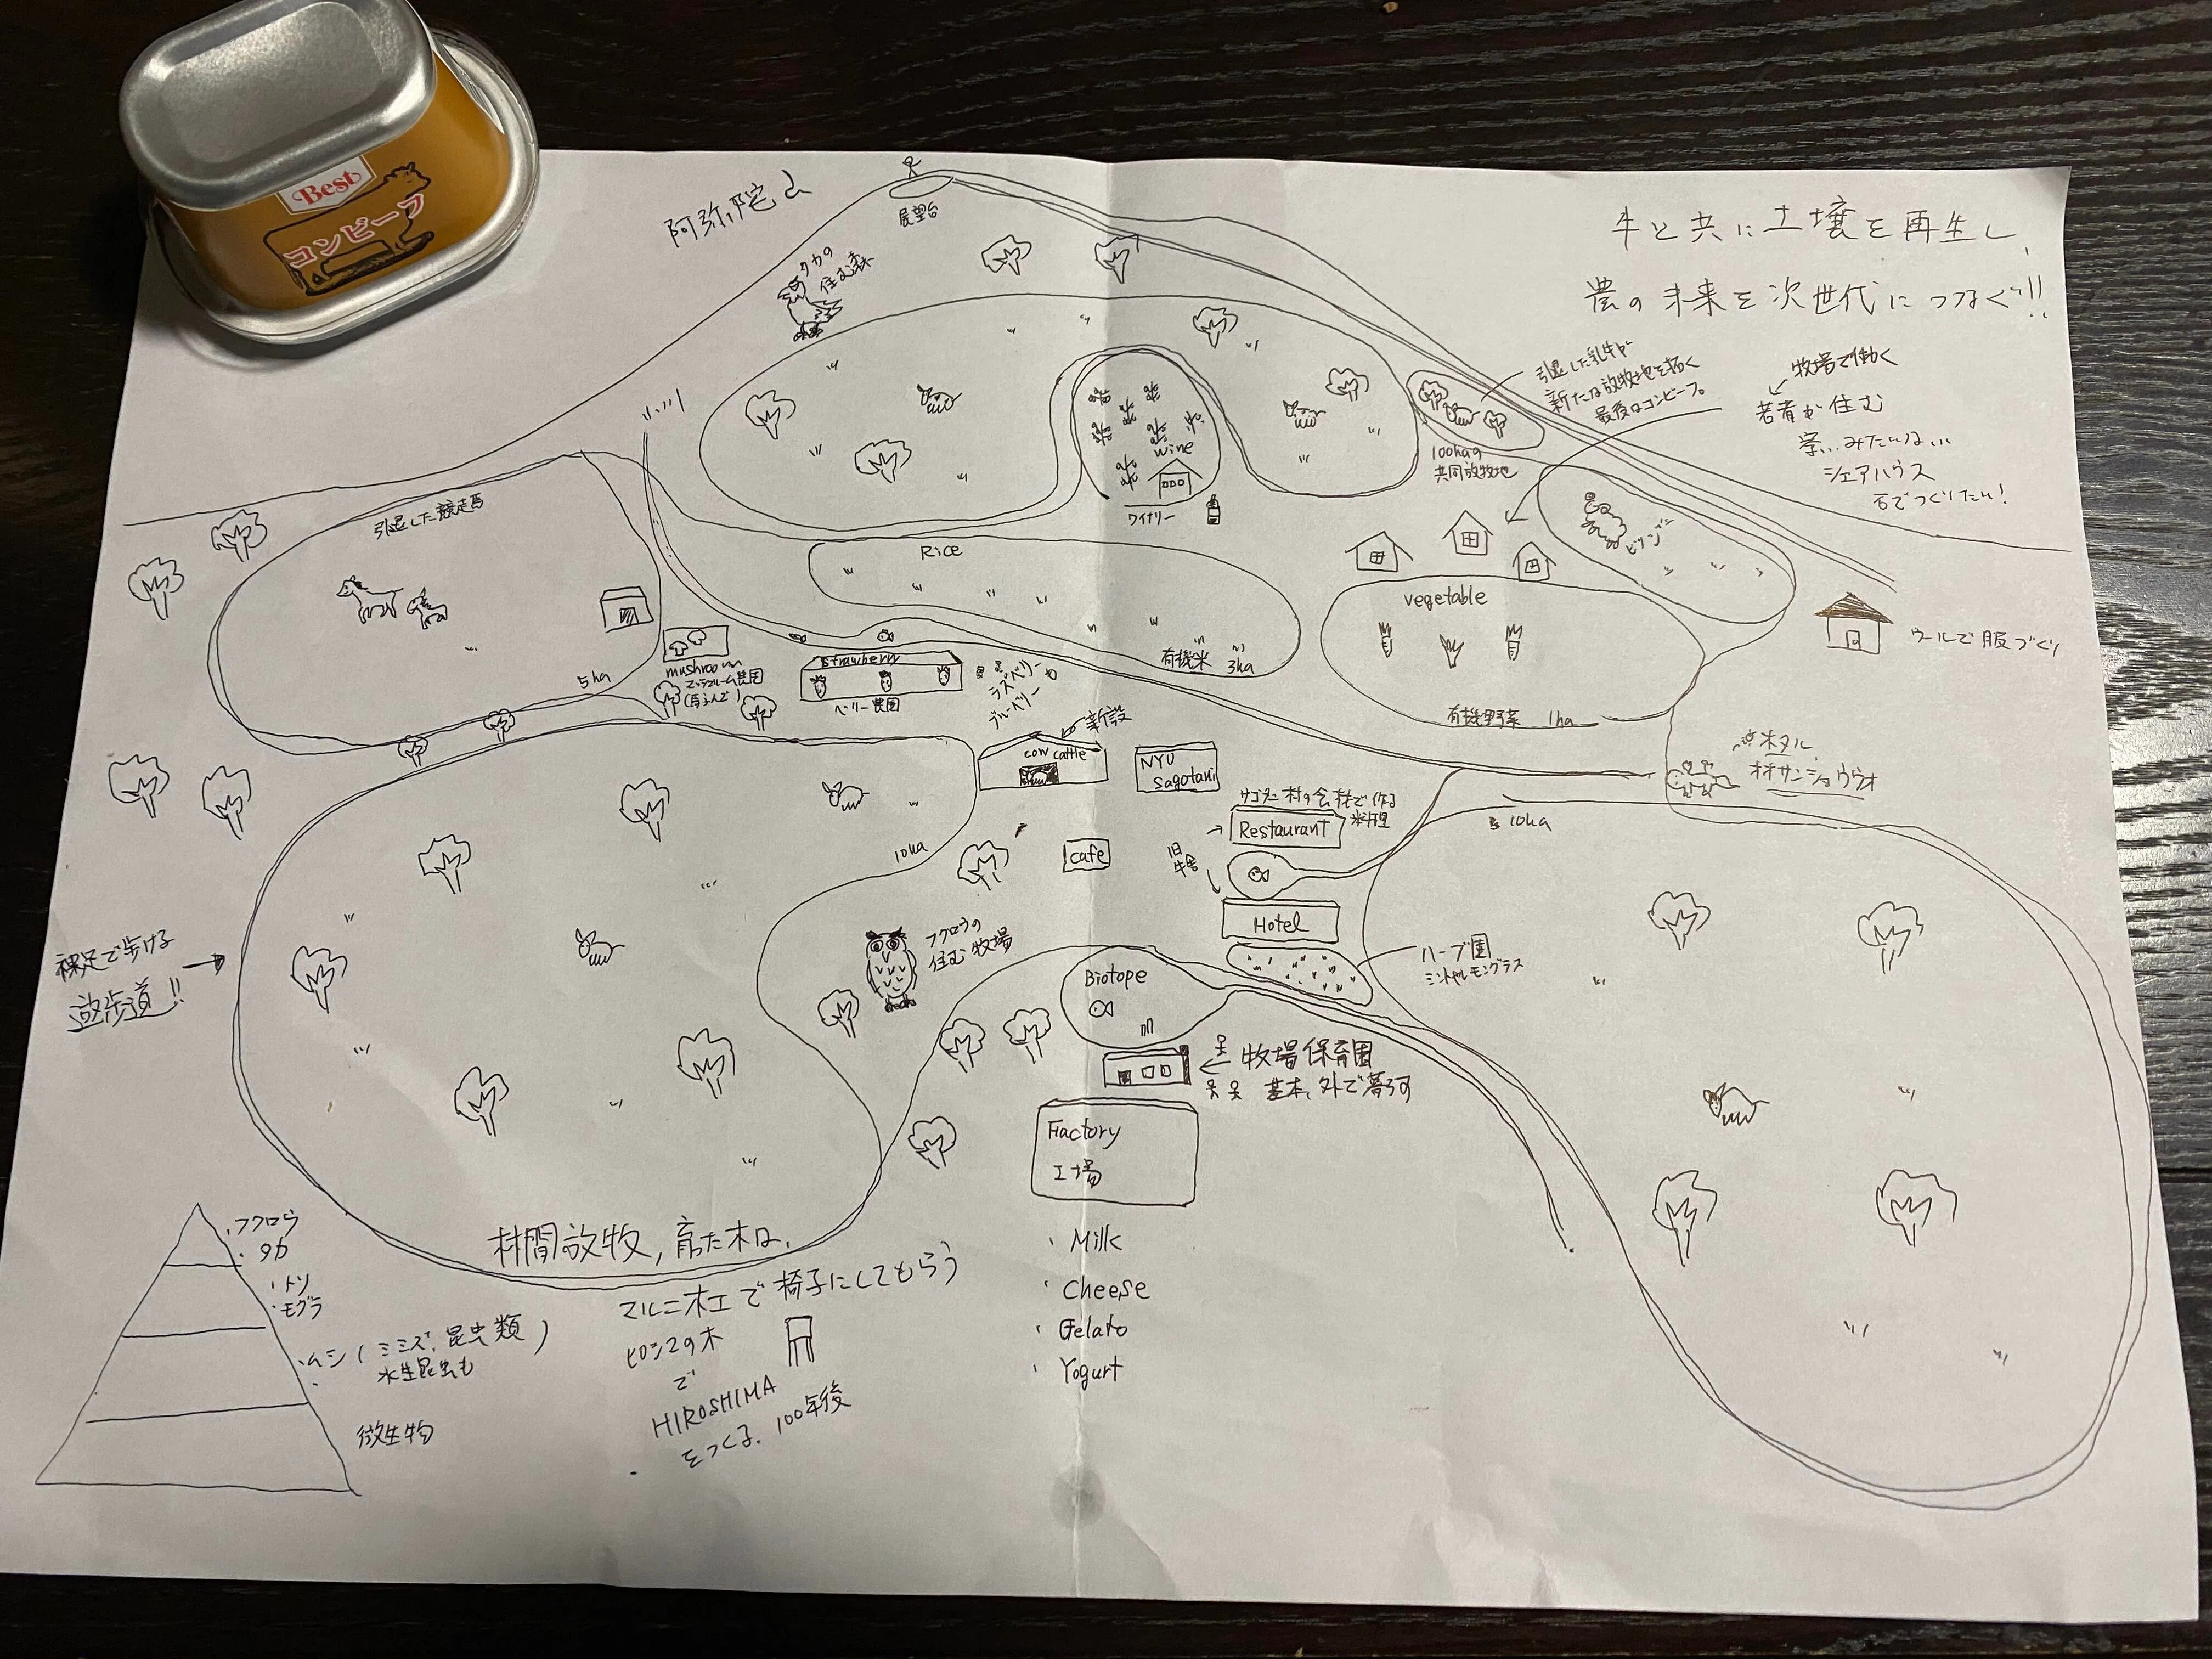 Best
コンビーフ
阿弥陀山
展望台
タカの
住む森
牛と共に土壌を再生し、
農の未来を次世代につなぐ!!
引退した乳牛が
新たな放牧地を拓く
最後はコンビーフ。
牧場で働く
若者が住む
寮...みたいな...
シェアハウス
石でつくりたい!
100haの
共同放牧地
小川
wine
ワイナリー
引退した競走馬
5ha
Rice
有機米 3ha
ヒツジ
vegetable
有機野菜 1ha
ウールで服づくり
mushroom
マッシュルーム農園
strawberry
ベリー農園
ラズベリー
ブルーベリー
新設
cow cattle
NYU
sagotani
ホタル
オオサンショウウオ
サゴタニ村の食材で作る
料理
Restaurant
10ha
10ha
cafe
旧
牛舎
Hotel
ハーブ園
ミントやレモングラス
フクロウの
住む牧場
裸足で歩ける
遊歩道!!
Biotope
牧場保育園
基本、外で暮らす
Factory
工場
・Milk
・Cheese
・Gelato
・Yogurt
林間放牧, 育った木は、
マルニ木工で椅子にしてもらう
ヒロシマの木
で
HIROSHIMA
をつくる. 100年後
・フクロウ
・タカ
・トリ
・モグラ
・ムシ(ミミズ、昆虫類)
水生昆虫も
微生物